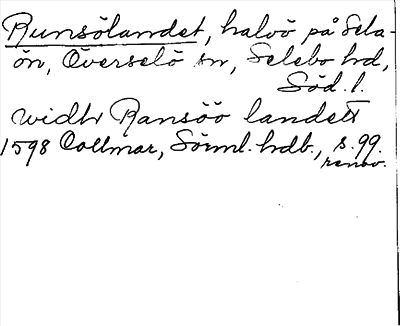 Runsölandet, halvö på Sela-
ön, Överselö sn, Selebo hd,
Söd. l.
widh Ransöö landett
1598 Collmar, Sörml. hdb., s. 99.
renov.